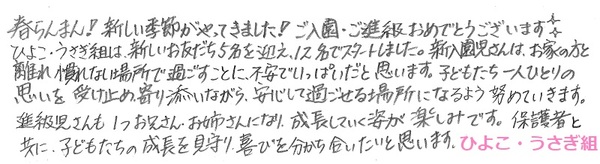 春らんまん！新しい季節がやってきました！ご入園・ご進級おめでとうございます
ひよこ・うさぎ組は、新しいお友だち5名を迎え、12名でスタートしました。新入園児さんは、お家の方と
離れ慣れない場所で過ごすことに、不安でいっぱいだと思います。子どもたち一人ひとりの
思いを受け止め、寄り添いながら、安心して過ごせる場所になるよう努めていきます。
進級児さんも1つお兄さん・お姉さんになり、成長していく姿が楽しみです。保護者と
共に、子どもたちの成長を見守り、喜びを分かち合いたいと思います。ひよこ・うさぎ組